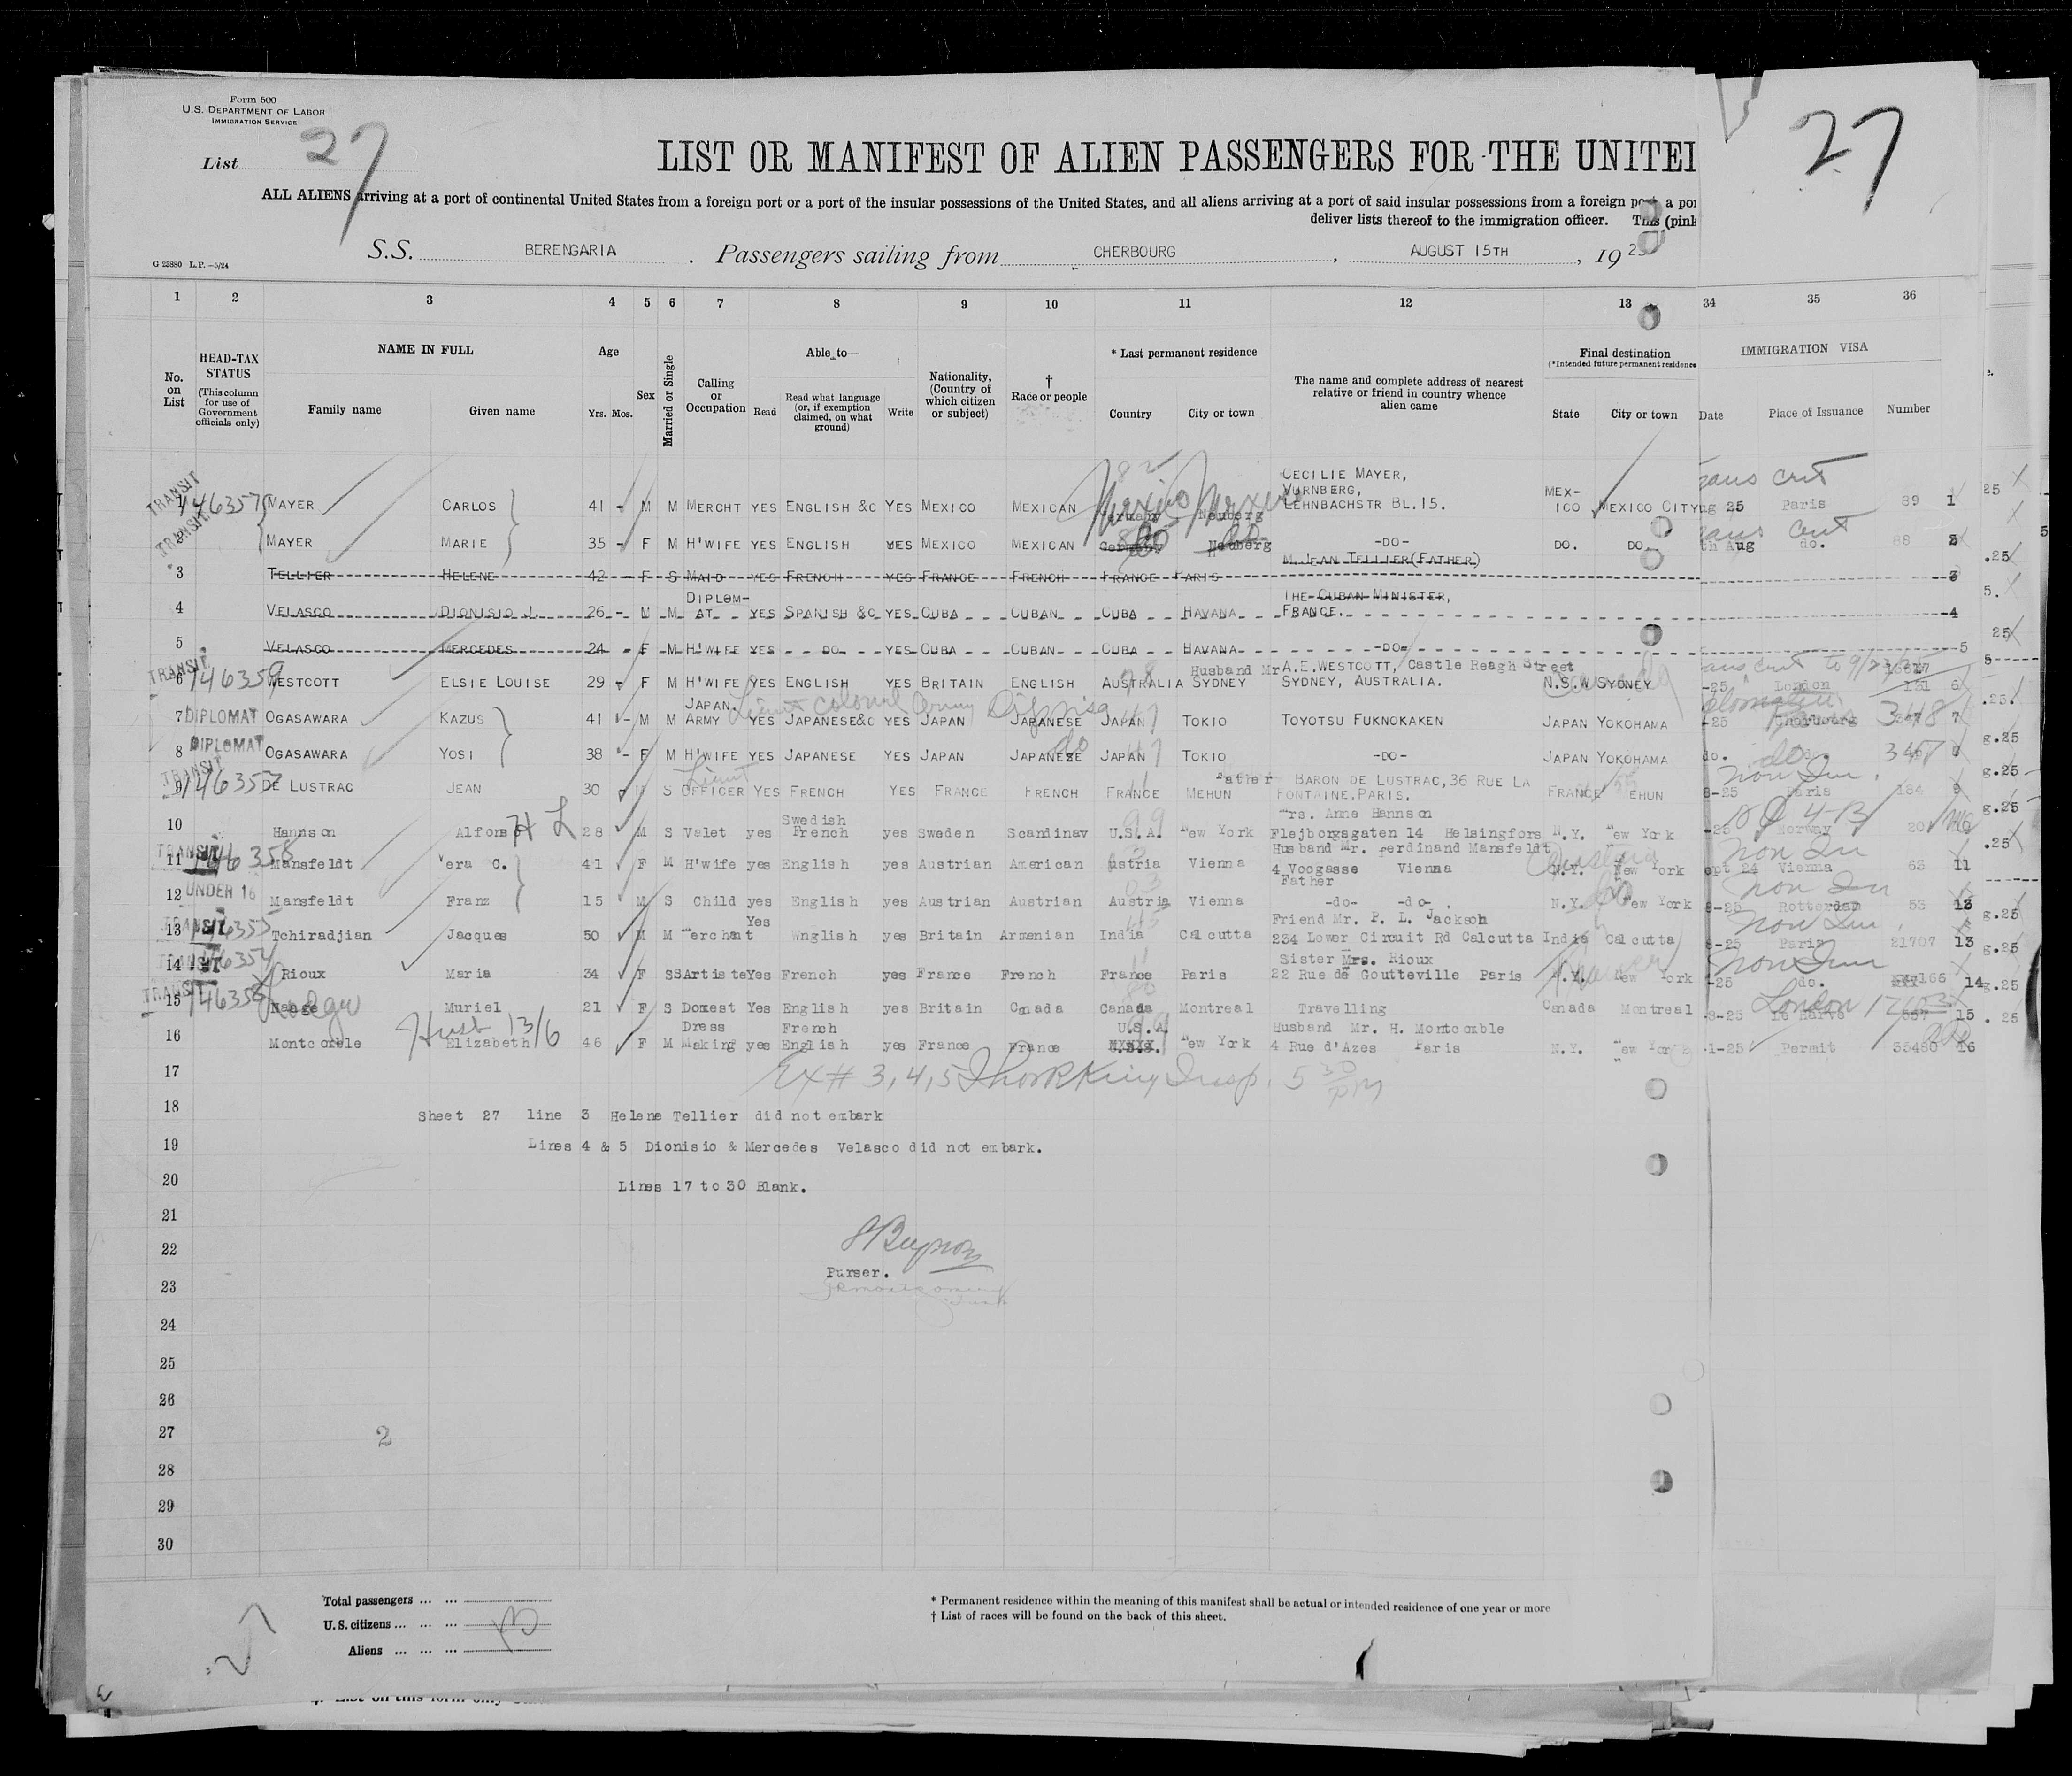 Form 500
U.S. DEPARTMENT OF LABOR
IMMIGRATION SERVICE
List 27
27
LIST OR MANIFEST OF ALIEN PASSENGERS FOR THE UNITE
ALL ALIENS arriving at a port of continental United States from a foreign port or a port of the insular possessions of the United States, and all aliens arriving at a port of said insular possessions from a foreign port, a por
deliver lists thereof to the immigration officer. This (pink
S.S. BERENGARIA. Passengers sailing from CHERBOURG, AUGUST 15TH, 192
G 23880 L.P.-5/24
1 2 3 4 5 6 7 8 9 10 11 12 13 34 35 36
No. on List
HEAD-TAX STATUS
(This column for use of Government officials only)
NAME IN FULL
Family name Given name
Age
Yrs. Mos.
Sex
Married or Single
Calling or Occupation
Able to—
Read
Read what language (or, if exemption claimed, on what ground)
Write
Nationality, (Country of which citizen or subject)
† Race or people
* Last permanent residence
Country City or town
The name and complete address of nearest relative or friend in country whence alien came
Final destination
(*Intended future permanent residence
State City or town
IMMIGRATION VISA
Date Place of Issuance Number
CECILIE MAYER,
TRANSIT 146357 MAYER CARLOS 41 - M M MERCHT YES ENGLISH &C YES MEXICO MEXICAN Mexico LEHNBACHSTR BL.15. MEX- ICO MEXICO CITY ug 25 Paris 89 1
TRANSIT MAYER MARIE 35 - F M H'WIFE YES ENGLISH YES MEXICO MEXICAN Germany Neuberg do -DO- DO. DO. th Aug do. 88 2
M. JEAN TELLIER(FATHER)
3 TELLIER HELENE 42 - F S MAID YES FRENCH YES FRANCE FRENCH FRANCE PARIS 3
4 VELASCO DIONISIO J. 26 - M M DIPLOM- AT YES SPANISH &C YES CUBA CUBAN CUBA HAVANA THE CUBAN MINISTER, FRANCE. 4
5 VELASCO MERCEDES 24 - F M H'WIFE YES DO YES CUBA CUBAN CUBA HAVANA -DO- 5
Husband Mr A.E.WESTCOTT, Castle Reagh Street
TRANSIT 6 146359 WESTCOTT ELSIE LOUISE 29 - F M H'WIFE YES ENGLISH YES BRITAIN ENGLISH AUSTRALIA SYDNEY SYDNEY, AUSTRALIA. N.S.W SYDNEY Canada -25 London 6
7 DIPLOMAT OGASAWARA KAZUS 41 - M M JAPAN. ARMY Lieut Colonel Army YES JAPANESE&C YES JAPAN JAPANESE JAPAN TOKIO TOYOTSU FUKNOKAKEN JAPAN YOKOHAMA -25 348 7
8 DIPLOMAT OGASAWARA YOSI 38 - F M H'WIFE YES JAPANESE YES JAPAN JAPANESE JAPAN TOKIO -DO- JAPAN YOKOHAMA do. do 347
TRANSIT 9 146357 DE LUSTRAC JEAN 30 M S Lieut OFFICER YES FRENCH YES FRANCE FRENCH FRANCE MEHUN Father BARON DE LUSTRAC,36 RUE LA FONTAINE.PARIS. FRANCE EHUN 8-25 Paris 164 9
10 Hannson Alfons 28 M S Valet yes Swedish French yes Sweden Scandinav U.S.A. New York Mrs. Anne Hannson Flejborgsgaten 14 Helsingfors N.Y. New York -25 Norway 20
TRANSIT 11 146358 Mansfeldt Vera C. 41 F M H'wife yes English yes Austrian American ustria Vienna Husband Mr. Ferdinand Mansfeldt 4 Voogasse Vienna N.Y. New York Austria Sept 24 Vienna 63 11
12 UNDER 16 Mansfeldt Franz 15 M S Child yes English yes Austrian Austrian Austria Vienna Father -do- -do- N.Y. New York do 8-25 Rotterdam 53
TRANSIT 13 146355 Tchiradjian Jacques 50 M M Merchant Yes Wnglish yes Britain Armenian India Calcutta Friend Mr. P. L. Jackson 234 Lower Circuit Rd Calcutta India Calcutta 8-25 Paris 21707 13
14 Rioux Maria 34 F SS Artiste Yes French yes France French France Paris Sister Mrs. Rioux 22 Rue de Goutteville Paris N.Y. New York -25 do. 166 14
TRANSIT 15 146356 Muriel 21 F S Domest Yes English yes Britain Canada Canada Montreal Travelling Canada Montreal 8-25 Le Havre London 15
16 Montcomble Elizabeth Husb 13/6 46 F M Dress Making yes French English yes France France U.S.A. New York Husband Mr. H. Montcomble 4 Rue d'Azes Paris N.Y. New York 1-25 Permit 35480 16
17 Ex # 3, 4, 5 Insp. 5 30 PM
18 Sheet 27 line 3 Helene Tellier did not embark
19 Lines 4 & 5 Dionisio & Mercedes Velasco did not embark.
20 Lines 17 to 30 Blank.
21
22
23 Purser.
24
25
26
27 2
28
29
30
Total passengers ... ...
U.S. citizens ... ... ...
Aliens ... ... ...
13
27
* Permanent residence within the meaning of this manifest shall be actual or intended residence of one year or more
† List of races will be found on the back of this sheet.